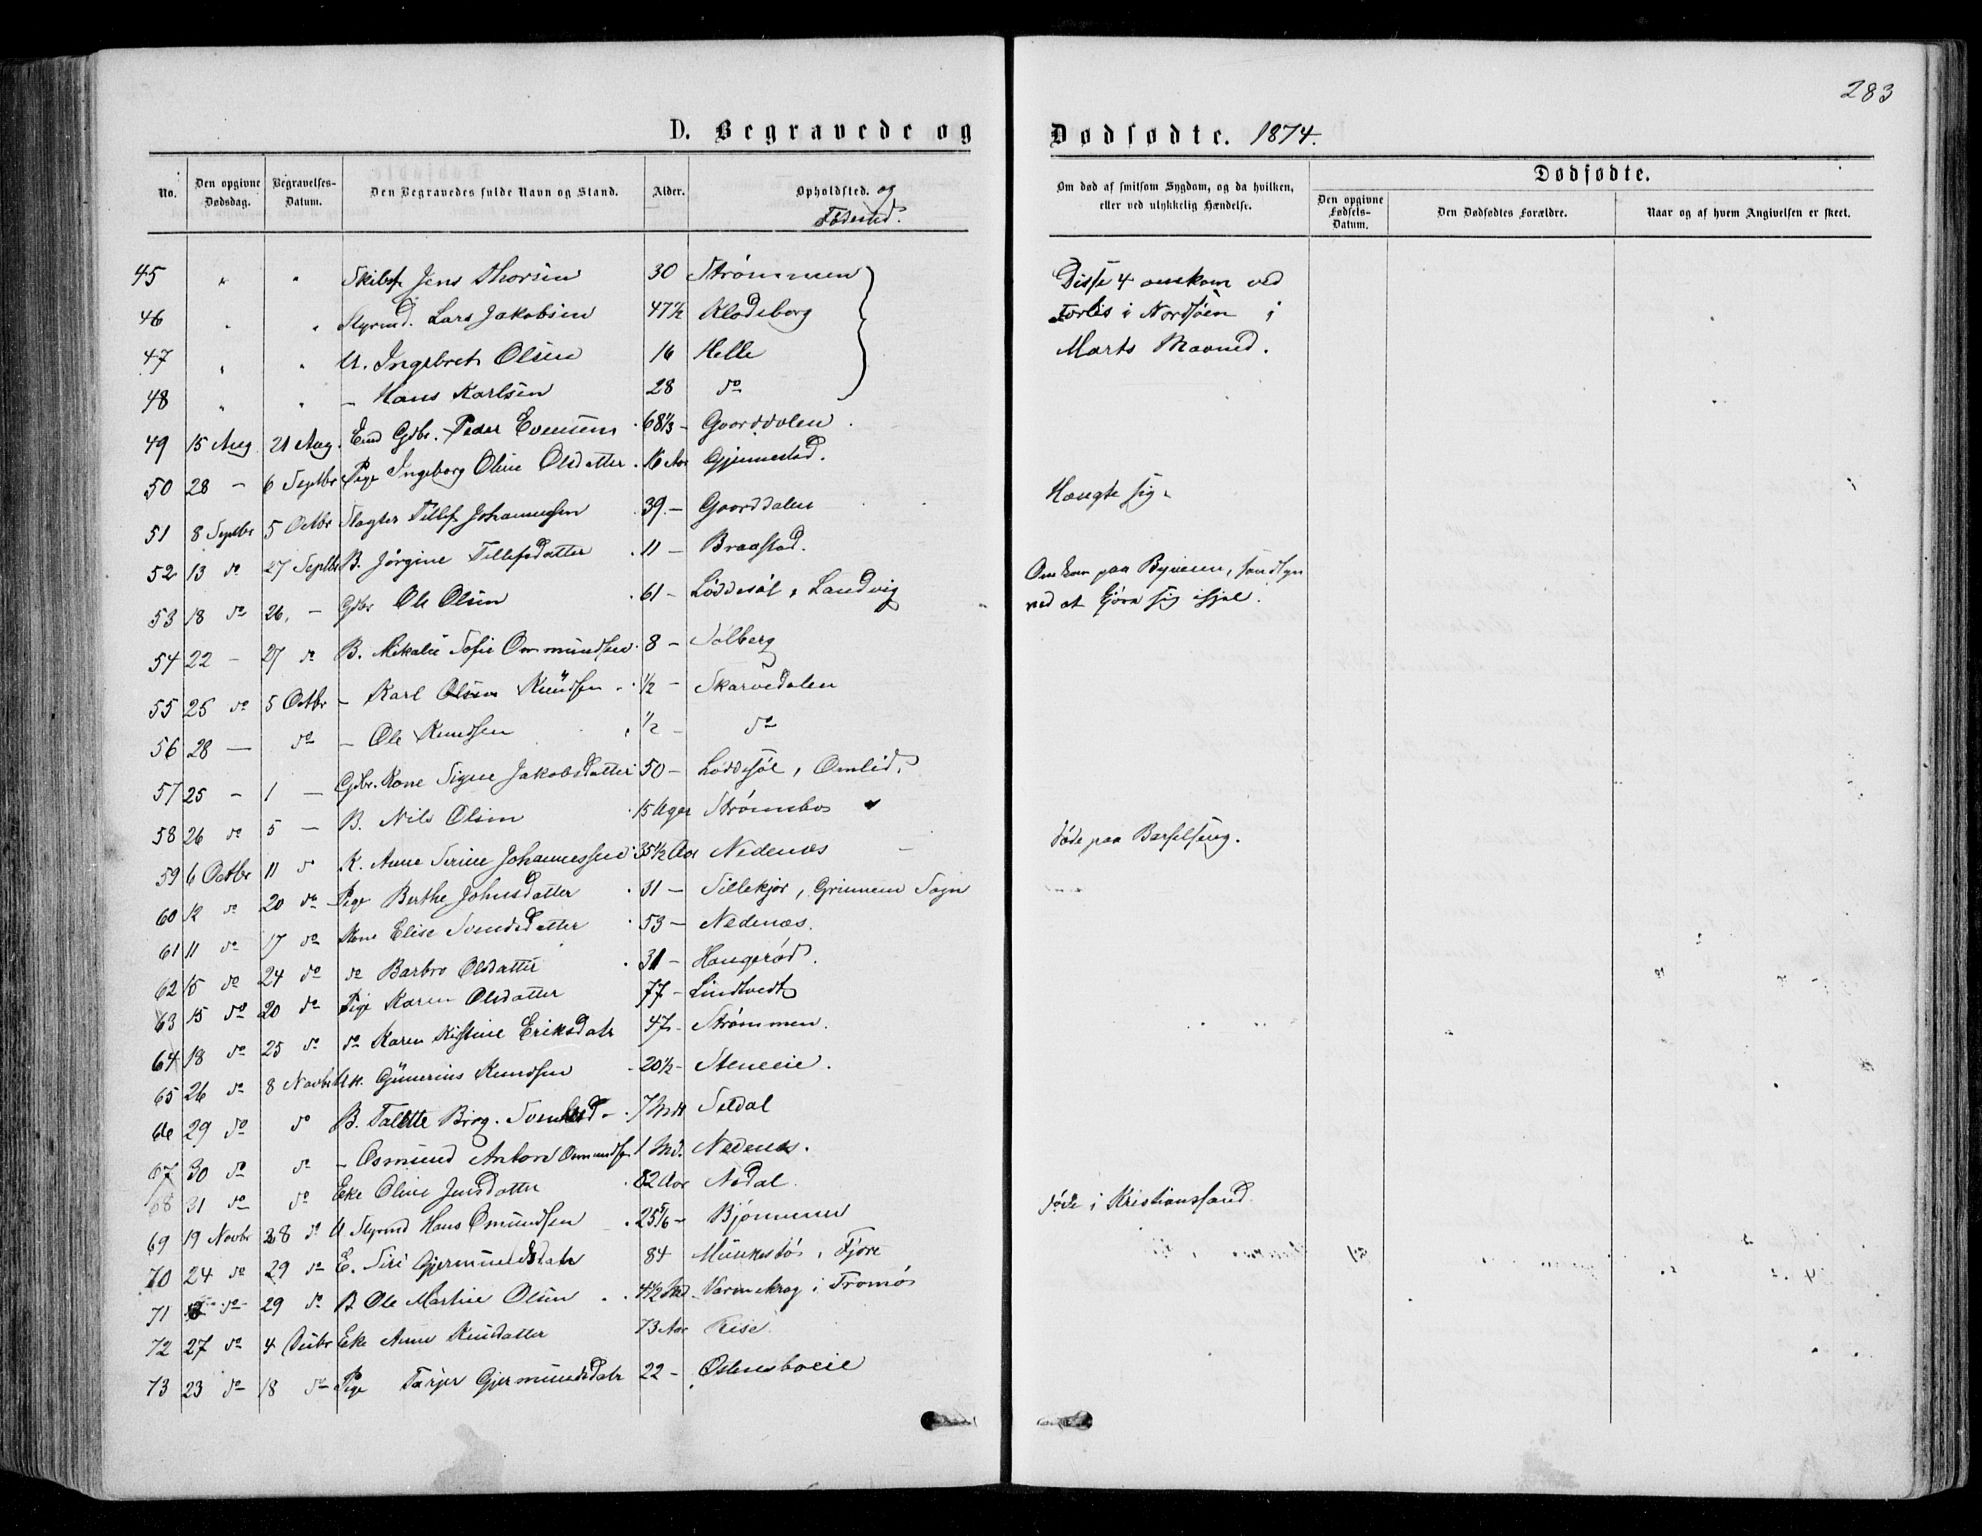 283
D. Begravede og Dødfødte. 1874.
No.
Den opgivne Dødsdag.
Begravelses-Datum.
Den Begravedes fulde Navn og Stand.
Alder.
Opholdsted. og Fødested.
Om død af smitsom Sygdom, og da hvilken, eller ved ulykkelig Hændelse.
Dødfødte.
Den opgivne Fødsels-Datum.
Den Dødfødtes Forældre.
Naar og af hvem Angivelsen er skeet.
45 " " Skibsf. Jens Thorsen 30 Strømmen Disse 4 omkom ved
46 " " Styrmd. Lars Jakobsen 47½ Klodeborg Forlis i Nordsøen i
47 " " U. Ingebret Olsen 16 Helle Marts Maaned.
48 " " — Hans Karlsen 28 do
49 15 Aug 21 Aug. Em Gdbr. Peder Evensen 68⅓ — Gaarddalen
50 28 — 6 Septbr Pige Ingeborg Oline Olsdatter 16 Aar Gjennestad.
51 8 Septbr 5 Octbr Slagter Tellef Johannesen 39 — Gaarddalen Hængte sig.
52 13 do 27 Septbr B. Jørgine Tellefsdatter 11 — Braastad.
53 18 do 26. — Gdbr Ole Olsen 61 — Løddesøl, Landvig Omkom paa Byveien,
ved at sig ihjel.
54 22 — 27 do B. Mikalie Sofie Ommundsen 8 — Solberg
55 25 do 5 Octbr — Karl Olsen Knudsen ½ — Skarvedalen
56 28 — do — Ole Knudsen ½ — do
57 25 — 1 — Gdbr. Kone Signe Jakobsdatter 50 — Løddesøl, Omlid.
58 26 do 5 — B. Nils Olsen 15 Uger Strømsbo
59 6 Octbr 11 d K. Anne Serine Johannessen 35½ Aar Nedenæs Døde paa Barselseng.
60 12 do 20 do Pige Berthe Johnsdatter 31 — Sillekjær, Sogn
61 11 do 17 do Kone Elise Svendsdatter 53 — Nedenæs.
62 15 do 24 do do Barbro Olsdatter 31 — Haugerød.
63 15 do 20 do Pige Karen Olsdatter 77 — Lindtvedt
64 18 do 25 do do Karen Kistine Eriksdatr 47 — Strømmen.
65 26 do 8 Novbr Gunerius Knudsen 20½ — Steneeie.
66 29 do do B. Talette Birg. 7 Mdr Seldal
67 30 do do — Osmund Anton Osmundsen 1 Md. Nedenæs.
68 31 do do Eke Oline Jensdatter 82 Aar Nødal.
69 19 Novbr 28 do U Styrmd Hans Osmundsen 25 5/6 — Bjønnenes Døde i Kristianssand.
70 24 do 29 do E. Siri Gjermundsdatr 84 Munkestøs, Fjære
71 do 29 do B Ole Martin Olsen 4½ Md. Varmekrog i Tromøs
72 27 do 4 Decbr Eke Anne Knudatter 73 Aar Reise.
73 23 do 18 do Pige Tarjer Gjermundsdatr 22 — Østensboeie